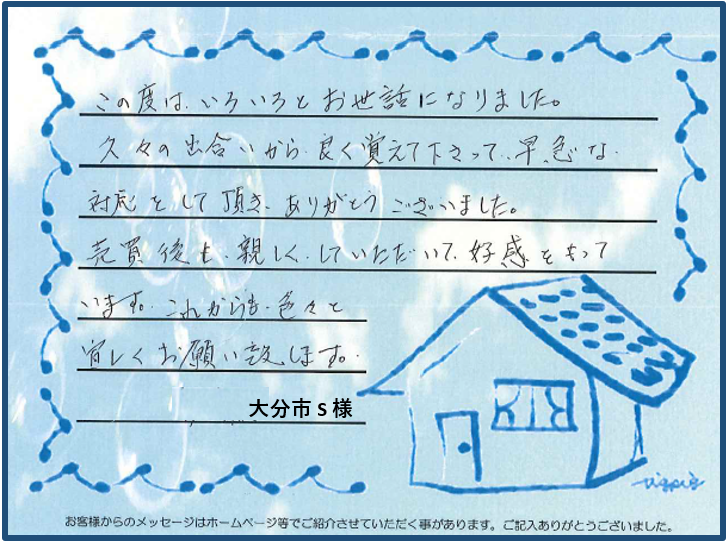 この度は、いろいろとお世話になりました。
久々の出合いから、良く覚えて下さって、早急な
対応をして頂き、ありがとうございました。
売買後も、親しく、していただいて、好感をもって
います。これからも、色々と
宜しくお願い致します。
大分市 S 様
お客様からのメッセージはホームページ等でご紹介させていただく事があります。ご記入ありがとうございました。